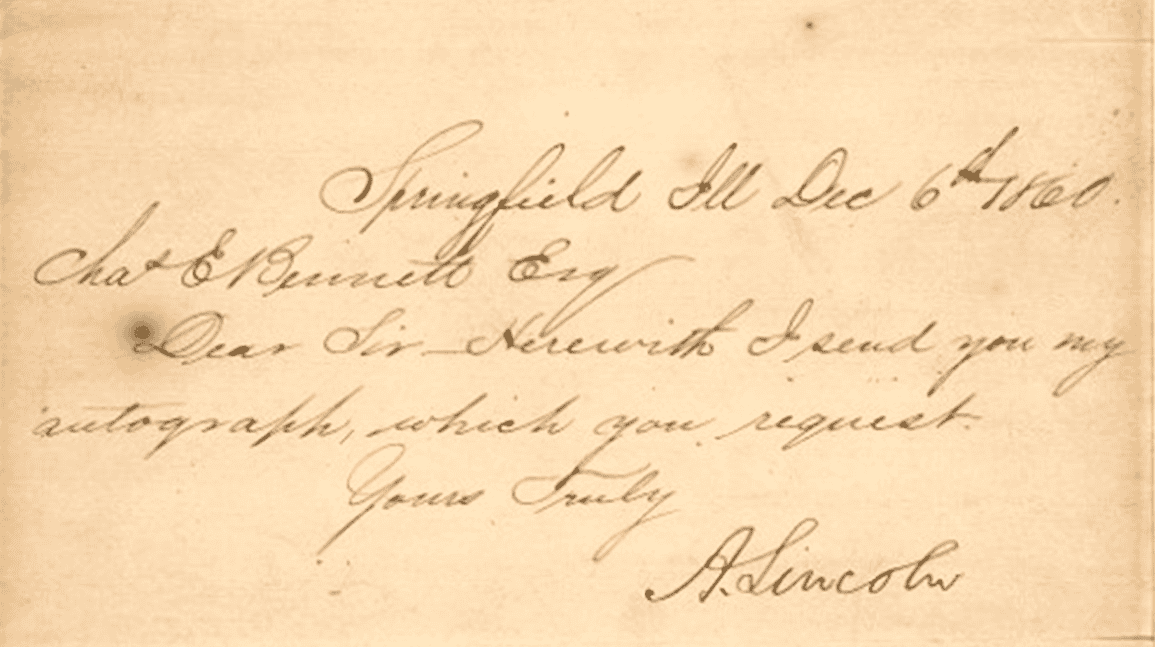 Springfield Ill Dec 6th 1860.
Chas E Bennett Esq
Dear Sir – Herewith I send you my
autograph, which you request.
Yours Truly
A. Lincoln